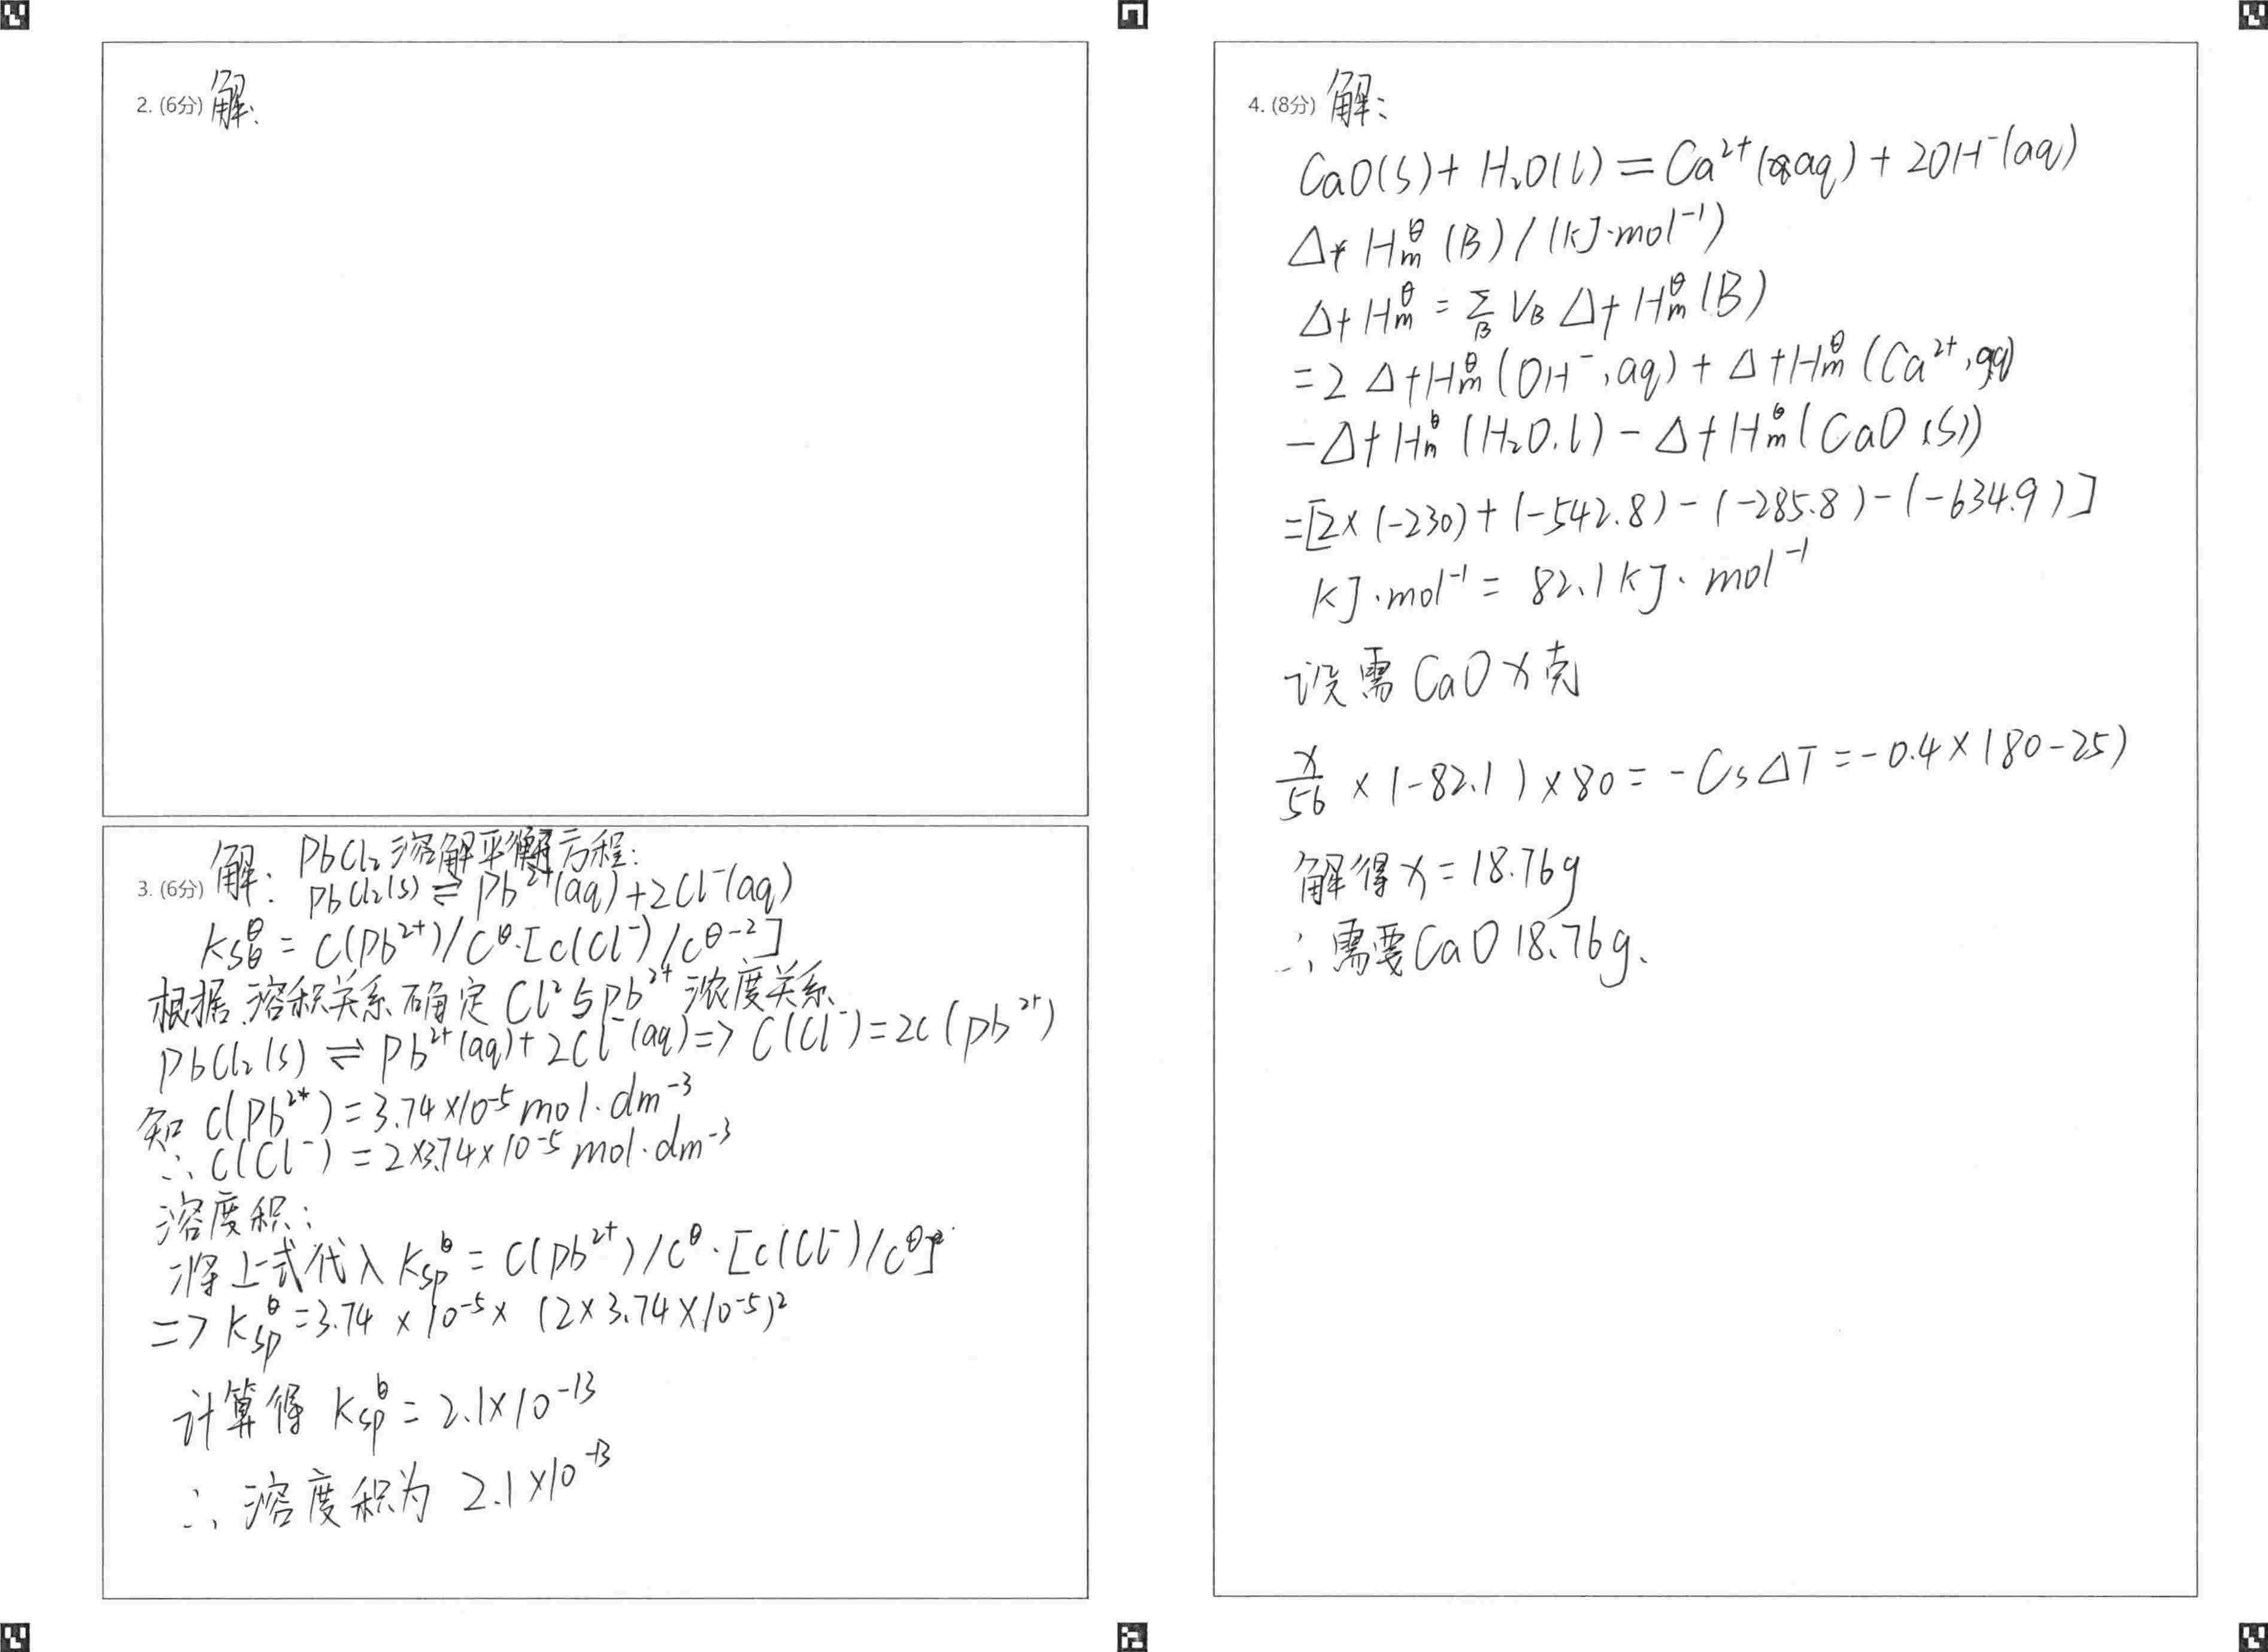 2. (6分) 解:
3. (6分) 解: PbCl₂溶解平衡方程:
PbCl₂(s) ⇌ Pb²⁺(aq)+2Cl⁻(aq)
Ksθ^θ = C(Pb²⁺)/C^θ·[c(Cl⁻)/c^θ⁻²]
根据溶积关系确定 Cl²与Pb²⁺浓度关系
PbCl₂(s) ⇌ Pb²⁺(aq)+2Cl⁻(aq)=> C(Cl⁻)=2c(Pb²⁺)
知 C(Pb²⁺)=3.74×10⁻⁵mol·dm⁻³
∴ C(Cl⁻)=2×3.74×10⁻⁵mol·dm⁻³
溶度积:
将上式代入 Ksp^θ = C(Pb²⁺)/C^θ·[c(Cl⁻)/c^θ]²
=> Ksp^θ=3.74×10⁻⁵×(2×3.74×10⁻⁵)²
计算得 Ksp^θ=2.1×10⁻¹³
∴溶度积为 2.1×10⁻¹³
4. (8分) 解:
CaO(s)+H₂O(l)=Ca²⁺(aq)+2OH⁻(aq)
Δf Hm^θ(B)/(kJ·mol⁻¹)
Δf Hm^θ = Σ_B V_B Δf Hm^θ(B)
=2 Δf Hm^θ(OH⁻,aq)+Δf Hm^θ(Ca²⁺,aq)
-Δf Hm^θ(H₂O.l)-Δf Hm^θ(CaO,s))
=[2×(-230)+(-542.8)-(-285.8)-(-634.9)]
kJ·mol⁻¹=82.1kJ·mol⁻¹
设需CaO x克
x/56×(-82.1)×80=-CsΔT=-0.4×(80-25)
解得x=18.76g
∴需要CaO 18.76g.